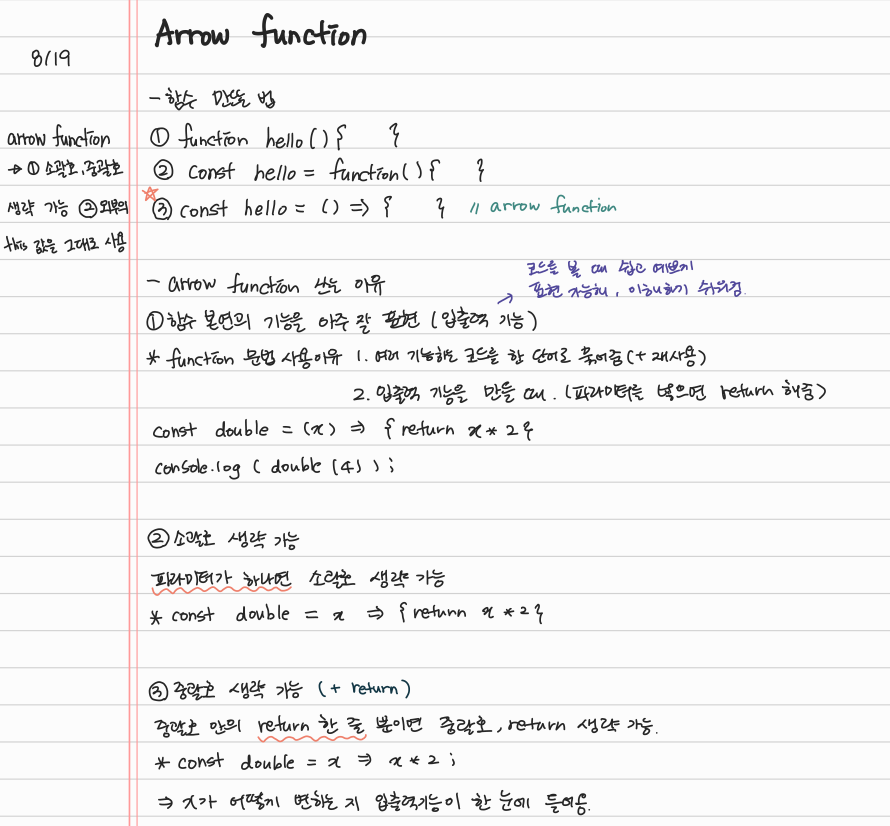 Arrow function
8/19
- 함수 만드는 법
① function hello() { }
② const hello = function() { }
☆③ const hello = () => { } // arrow function
arrow function
→ ① 소괄호, 중괄호
생략 가능 ② 외부의
this 값을 그대로 사용
- arrow function 쓰는 이유
→ 코드를 볼 때 쉽고 예쁘게
표현 가능해, 이해하기 쉬워짐.
① 함수 본연의 기능을 아주 잘 표현 (입출력 기능)
* function 문법 사용이유 1. 여러 기능하는 코드를 한 단어로 묶어줌 (+ 재사용)
2. 입출력 기능을 만들 때. (파라미터를 넣으면 return 해줌)
const double = (x) => { return x * 2 }
console.log ( double (4) ) ;
② 소괄호 생략 가능
파라미터가 하나면 소괄호 생략 가능
* const double = x => { return x * 2 }
③ 중괄호 생략 가능 (+ return)
중괄호 안의 return 한 줄 뿐이면 중괄호, return 생략 가능.
* const double = x => x * 2 ;
⇒ x가 어떻게 변하는 지 입출력기능이 한 눈에 들어옴.